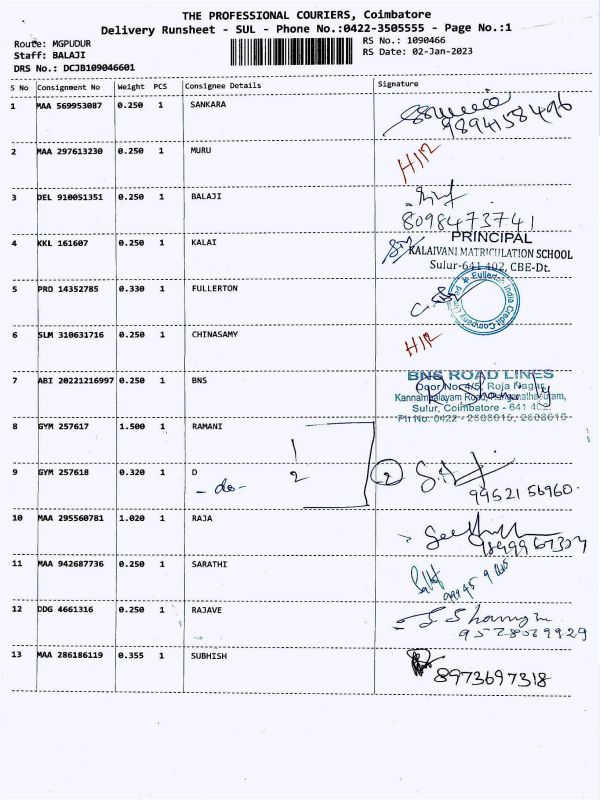 THE PROFESSIONAL COURIERS, Coimbatore
Delivery Runsheet - SUL - Phone No.:0422-3505555 - Page No.:1
Route: MGPUDUR
RS No.: 1090466
Staff: BALAJI
RS Date: 02-Jan-2023
DRS No.: DCJB109046601
S No Consignment No Weight PCS Consignee Details Signature
1 MAA 569953087 0.250 1 SANKARA
9894158496
2 MAA 297613230 0.250 1 MURU
3 DEL 910051351 0.250 1 BALAJI
8098473741
4 KKL 161607 0.250 1 KALAI
PRINCIPAL
KALAIVANI MATRICULATION SCHOOL
Sulur-641 402, CBE-Dt.
5 PRO 14352785 0.330 1 FULLERTON
Fullerton India Credit Company Limited
6 SLM 310631716 0.250 1 CHINASAMY
7 ABI 20221216997 0.250 1 BNS
BNS ROAD LINES
Door No:4/5, Roja Nagar,
Kannampalayam Road, Ranganathapuram,
Sulur, Coimbatore - 641 402.
Ph No: 0422 - 2608615, 2608616
8 GYM 257617 1.500 1 RAMANI
1
9 GYM 257618 0.320 1 D
- do -
2
2
9952156960
10 MAA 295560781 1.020 1 RAJA
11 MAA 942687736 0.250 1 SARATHI
12 DDG 4661316 0.250 1 RAJAVE
9578069929
13 MAA 286186119 0.355 1 SUBHISH
8973697318